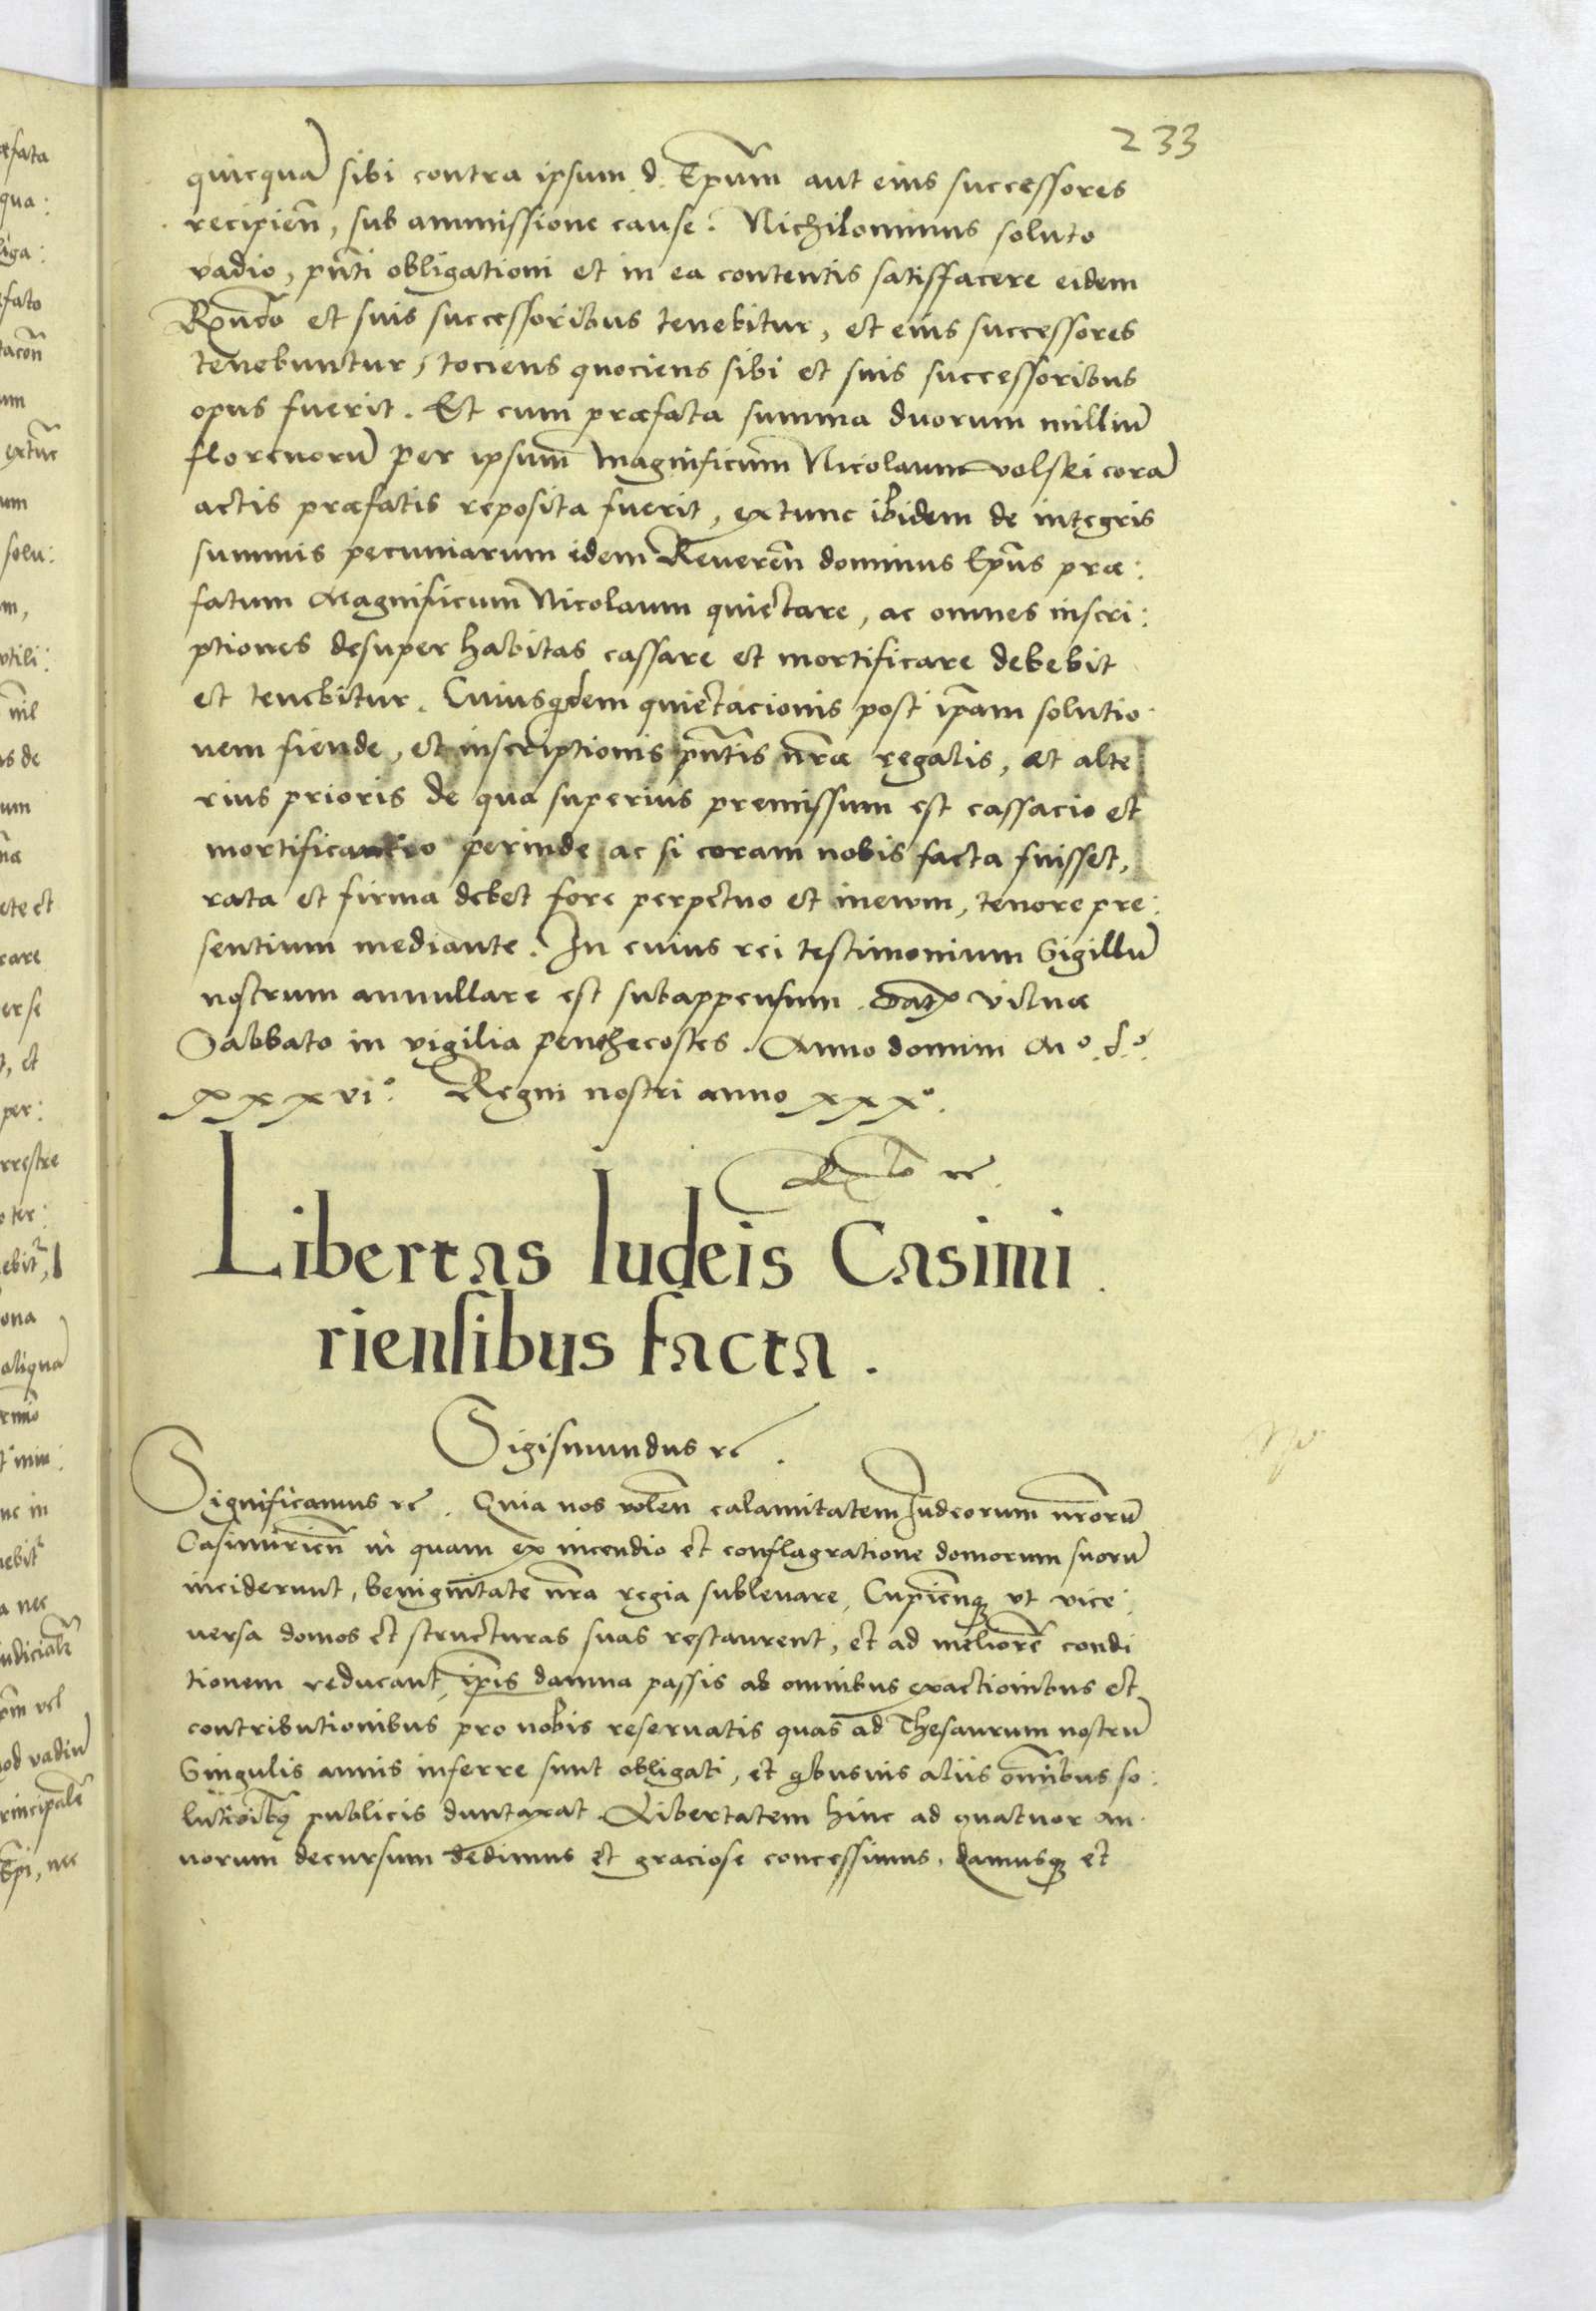 233
quicquã sibi contra ipsum d. Ep̃um aut eius successores
recipieñ, sub ammissione cause. Nichilominus soluto
vadio, pñti obligationi et in ea contentis satisfacere eidem
Rñdo et suis successoribus tenebitur, et eius successores
tenebuntur, tociens quociens sibi et suis successoribus
opus fuerit. Et cum præfata summa duorum milliũ
florenorũ per ipsum magnificum Nicolaum volski corã
actis præfatis reposita fuerit, extunc ibidem de integris
summis pecuniarum idem Reuereñ dominus Ep̃us præ:
fatum Magnificum Nicolaum quietare, ac omnes inscri:
ptiones desuper habitas cassare et mortificare debebit
et tenebitur. Cuiusqdem quietacionis post ip̃am solutio
nem fiende, et inscriptionis pñtis nr̃æ regalis, et alte
rius prioris de qua superius premissum est cassacio et
mortificatio perinde ac si coram nobis facta fuisset,
rata et firma debet fore perpetuo et ineuum, tenore pre:
sentium mediante. In cuius rei testimonium Sigillũ
nostrum annullare est subappensum. Dat Vilnæ
Sabbato in vigilia penthecostes. Anno domini Mº. dº.
xxxviº. Regni nostri anno xxxº.
Libertas Iudeis Casimi
riensibus facta.
Sigismundus rc.
Significamus rc. Quia nos voleñ calamitatem Iudeorum nr̃orũ
Casimirieñ in quam ex incendio et conflagratione domorum suorũ
inciderunt, benignitate nr̃a regia subleuare, Cupieñq ut vice
versa domos et structuras suas restaurent, et ad meliorẽ condi
tionem reducant, ip̃is damna passis ab omnibus exactionibus et
contributionibus pro nobis reseruatis quas ad Thesaurum nostrũ
Singulis annis inferre sunt obligati, et qbusuis aliis omnibus so:
lutioibq publicis duntaxat. Libertatem hinc ad quatuor an
norum decursum dedimus et graciose concessimus, damusq et